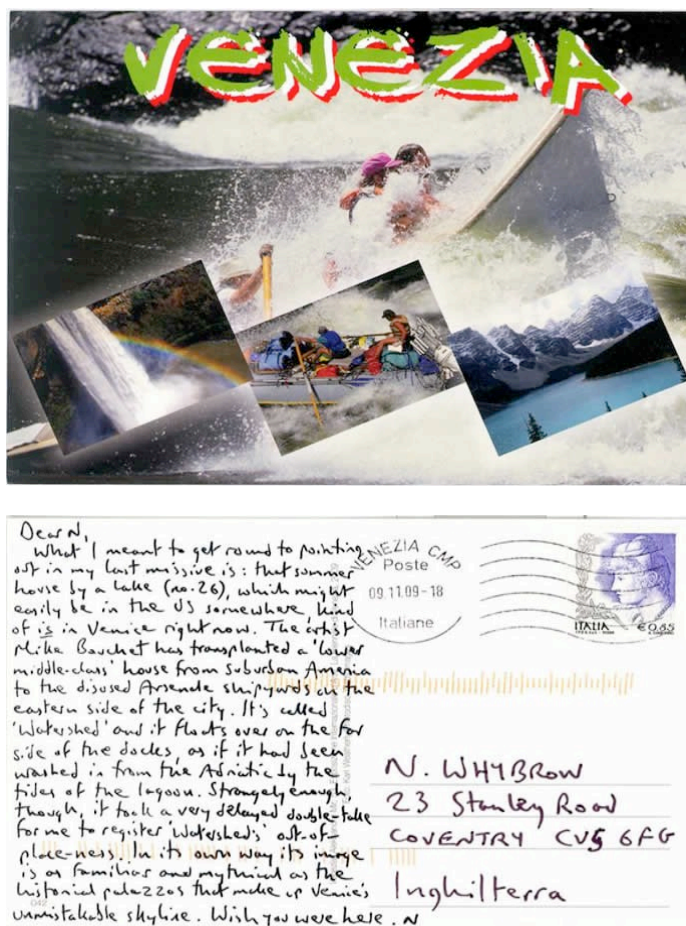 VENEZIA
Dear N,
What I meant to get round to pointing
out in my last missive is: that summer
house by a lake (no.26), which might
easily be in the US somewhere kind
of is in Venice right now. The artist
Mike Bouchet has transplanted a 'lower
middle-class' house from suburban America
to the disused Arsenale shipyards on the
eastern side of the city. It's called
'Watershed' and it floats over on the far
side of the docks, as if it had been
washed in from the Adriatic by the
tides of the lagoon. Strangely enough,
though, it took a very delayed double-take
for me to register 'Watershed's' out-of-
place-ness. In its own way its image
is as familiar and mythical as the
historical palazzos that make up Venice's
unmistakable skyline. Wish you were here. N
VENEZIA CMP
Poste
09.11.09-18
Italiane
ITALIA
€0,85
N. WHYBROW
23 Stanley Road
COVENTRY CV5 6FG
Inghilterra
042